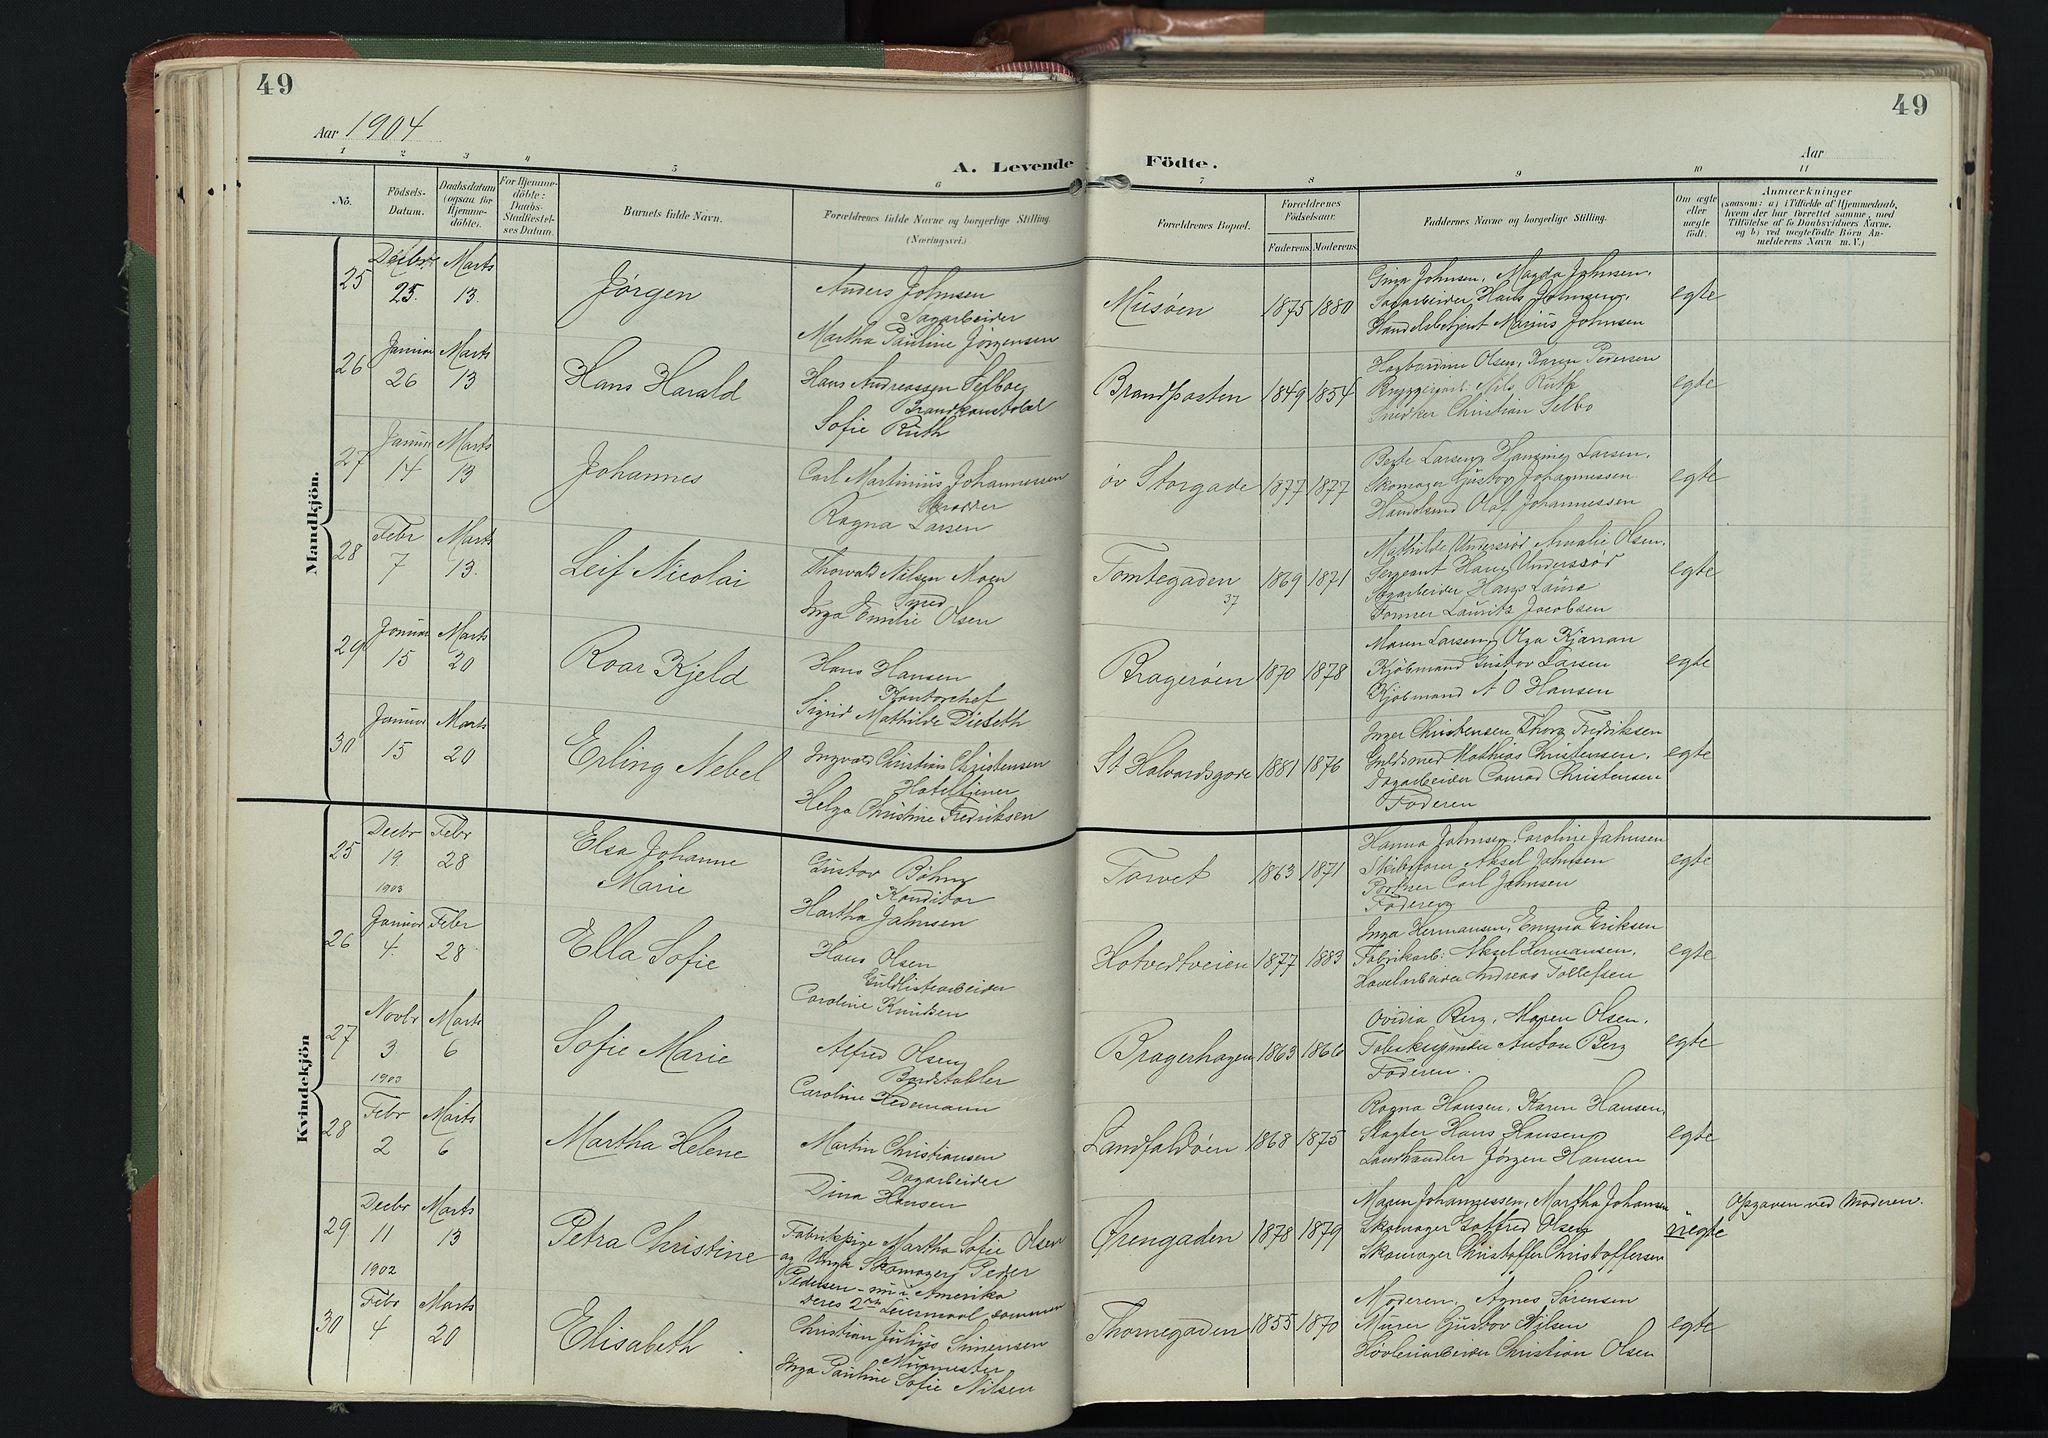 49
49
Aar 1904
Aar
A. Levende Födte.
1 2 3 4 5 6 7 8 9 10 11
No.
Födsels-
Datum.
Daabsdatum
(ogsaa for
Hjemme-
döbte).
For Hjemme-
döbte:
Daabs-
Stadfæstel-
ses Datum.
Barnets fulde Navn.
Forældrenes fulde Navne og borgerlige Stilling.
(Næringsvei.)
Forældrenes Bopæl.
Forældrenes
Födselsaar.
Faderens. Moderens.
Faddernes Navne og borgerlige Stilling.
Om ægte
eller
uægte
født.
Anmærkninger
(saasom: a) i Tilfælde af Hjemmedaab,
hvem der har forrettet samme, med
Tilföielse af to Daabsvidners Navne,
og b) ved uægtefödte Börn An-
melderens Navn m. V.)
Mandkjön.
25
Decbr
25.
Marts
13.
Jørgen
Anders Johnsen
Sagarbeider
Martha Pauline Jørgensen
Musøen
1875 1880
Gina Johnsen, Magda Johnsen,
Sagarbeider Hans Johnsen,
Handelsbetjent Marius Johnsen
egte
26
Januar
26
Marts
13
Hans Harald
Hans Andreassen Selboe
Brandkonstabel
Sofie Ruth
Brandposten
1849 1854
Hagbardine Olsen, Karen Pedersen
Bryggeriarb. Nils Ruth
Snedker Christian Selbo
egte
27
Januar
14
Marts
13
Johannes
Carl Martinius Johannessen
Skrædder
Ragna Larsen
øv Storgade
1877 1877
Berte Larsen, Hansine Larsen,
Skomager Gustav Johannessen
Handelsmd Olaf Johannessen
egte
28
Febr
7
Marts
13.
Leif Nicolai
Thorvald Nilsen Moen
Smed
Inga Emilie Olsen
Tomtegaden
37
1869 1871
Mathilde Undersrød Amalie Olsen,
Sergeant Hans Undersrød
Sagarbeider Hans
Former Lauritz Jacobsen
egte
29
Januar
15
Marts
20
Roar Kjeld
Hans Hansen
Kontorchef
Sigrid Mathilde Dieseth
Bragerøen
1870 1878
Maren Larsen, Olga Kjønan
Kjøbmand Gustav Larsen
Kjøbmand A O Hansen
egte
30
Januar
15
Marts
20
Erling Nebel
Ingvald Christian Christensen
Hoteltjener
Helga Christine Fredriksen
St Halvardsgade
1881 1876
Inger Christensen Thora Fredriksen
Guldsmed Mathias Christensen,
Dagarbeider Conrad Christensen
Faderen
egte
Kvindekjön
25
Decbr
19.
1903
Febr
28
Elsa Johanne
Marie
Gustav Bøhm
Konditor
Hartha Jahnsen
Torvet
1863 1871
Hanna Jahnsen, Caroline Jahnsen
Skibsfører Aksel Jahnsen
Portner Carl Jahnsen
Faderen
egte
26
Januar
4.
Febr
28
Ella Sofie
Hans Olsen
Guldlistearbeider
Caroline Knudsen
Hotvedtveien
1877 1883
Inga Hermansen, Emma Eriksen
Fabrikarb: Aksel Hermansen,
Høvelarbeider Andreas Tollefsen
egte
27
Novbr
3
1903
Marts
6
Sofie Marie
Alfred Olsen
Bordstabler
Caroline Hedemann
Bragerhagen
1863 1866
Ovidia Berg, Maren Olsen,
Tobakspinder Anton Berg
Faderen.
egte
28
Febr
2
Marts
6
Martha Helene
Martin Christiansen
Dagarbeider
Dina Hansen
Landfaldøen
1868 1875
Ragna Hansen, Karen Hansen,
Slagter Hans Hansen
Landhandler Jørgen Hansen
egte
29
Decbr
11
1902
Marts
13
Petra Christine
Fabrikpige Martha Sofie Olsen
og Unga Skomager Peder
Pedersen - nu i Amerika
deres 2det Leiermaal sammen
Ørengaden
1878 1879
Maren Johannessen, Martha Johansen
Skomager Gotfred Olsen
Skomager Christoffer Christoffersen
uegte
Opgaven ved Moderen.
30
Febr
4
Marts
20
Elisabeth
Christian Julius Simensen
Murmester
Inga Pauline Sofie Nilsen
Thornegaden
1855 1870
Moderen, Agnes Sørensen
Murer Gustav Nilsen
Høvleriarbeider Christian Olsen
egte